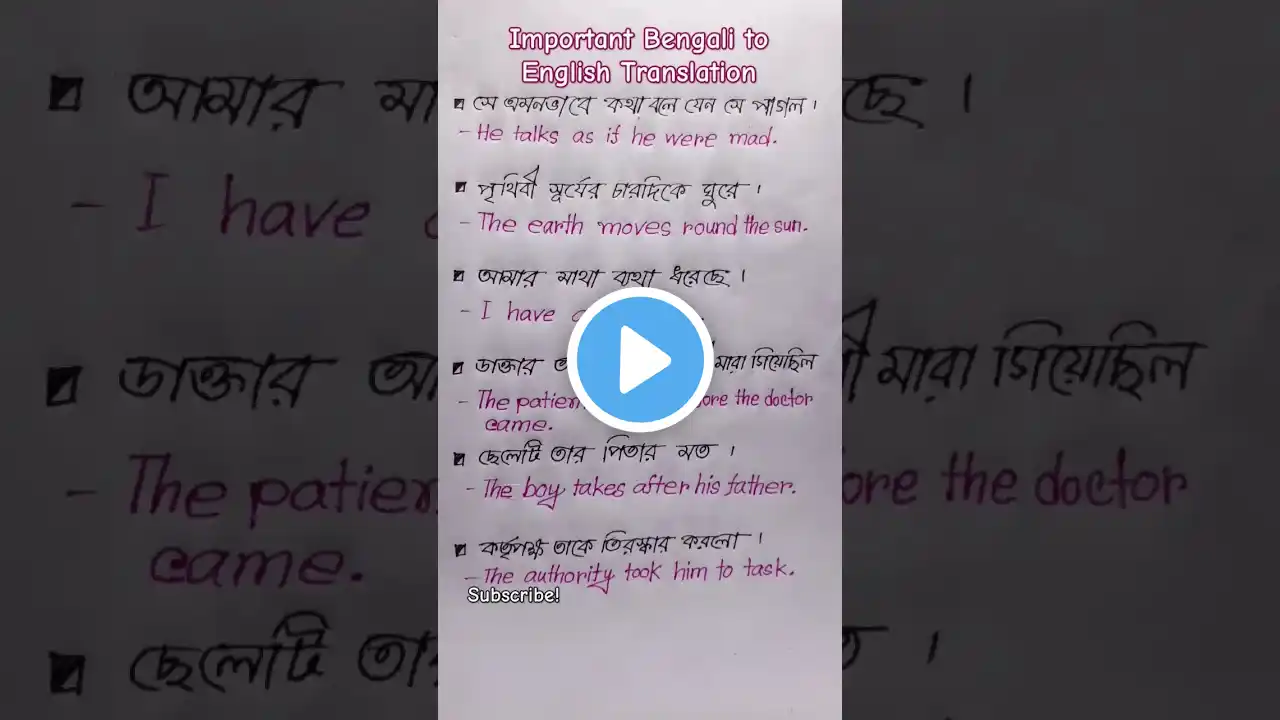 Important Bengali to
English Translation
সে এমনভাবে কথা বলে যেন সে পাগল।
- He talks as if he were mad.
পৃথিবী সূর্যের চারদিকে ঘুরে।
- The earth moves round the sun.
আমার মাথা ব্যথা ধরেছে।
- I have
ডাক্তার মারা গিয়েছিল
- The the doctor
came.
ছেলেটি তার পিতার মত।
- The boy takes after his father.
কর্তৃপক্ষ তাকে তিরস্কার করলো।
- The authority took him to task.
Subscribe!